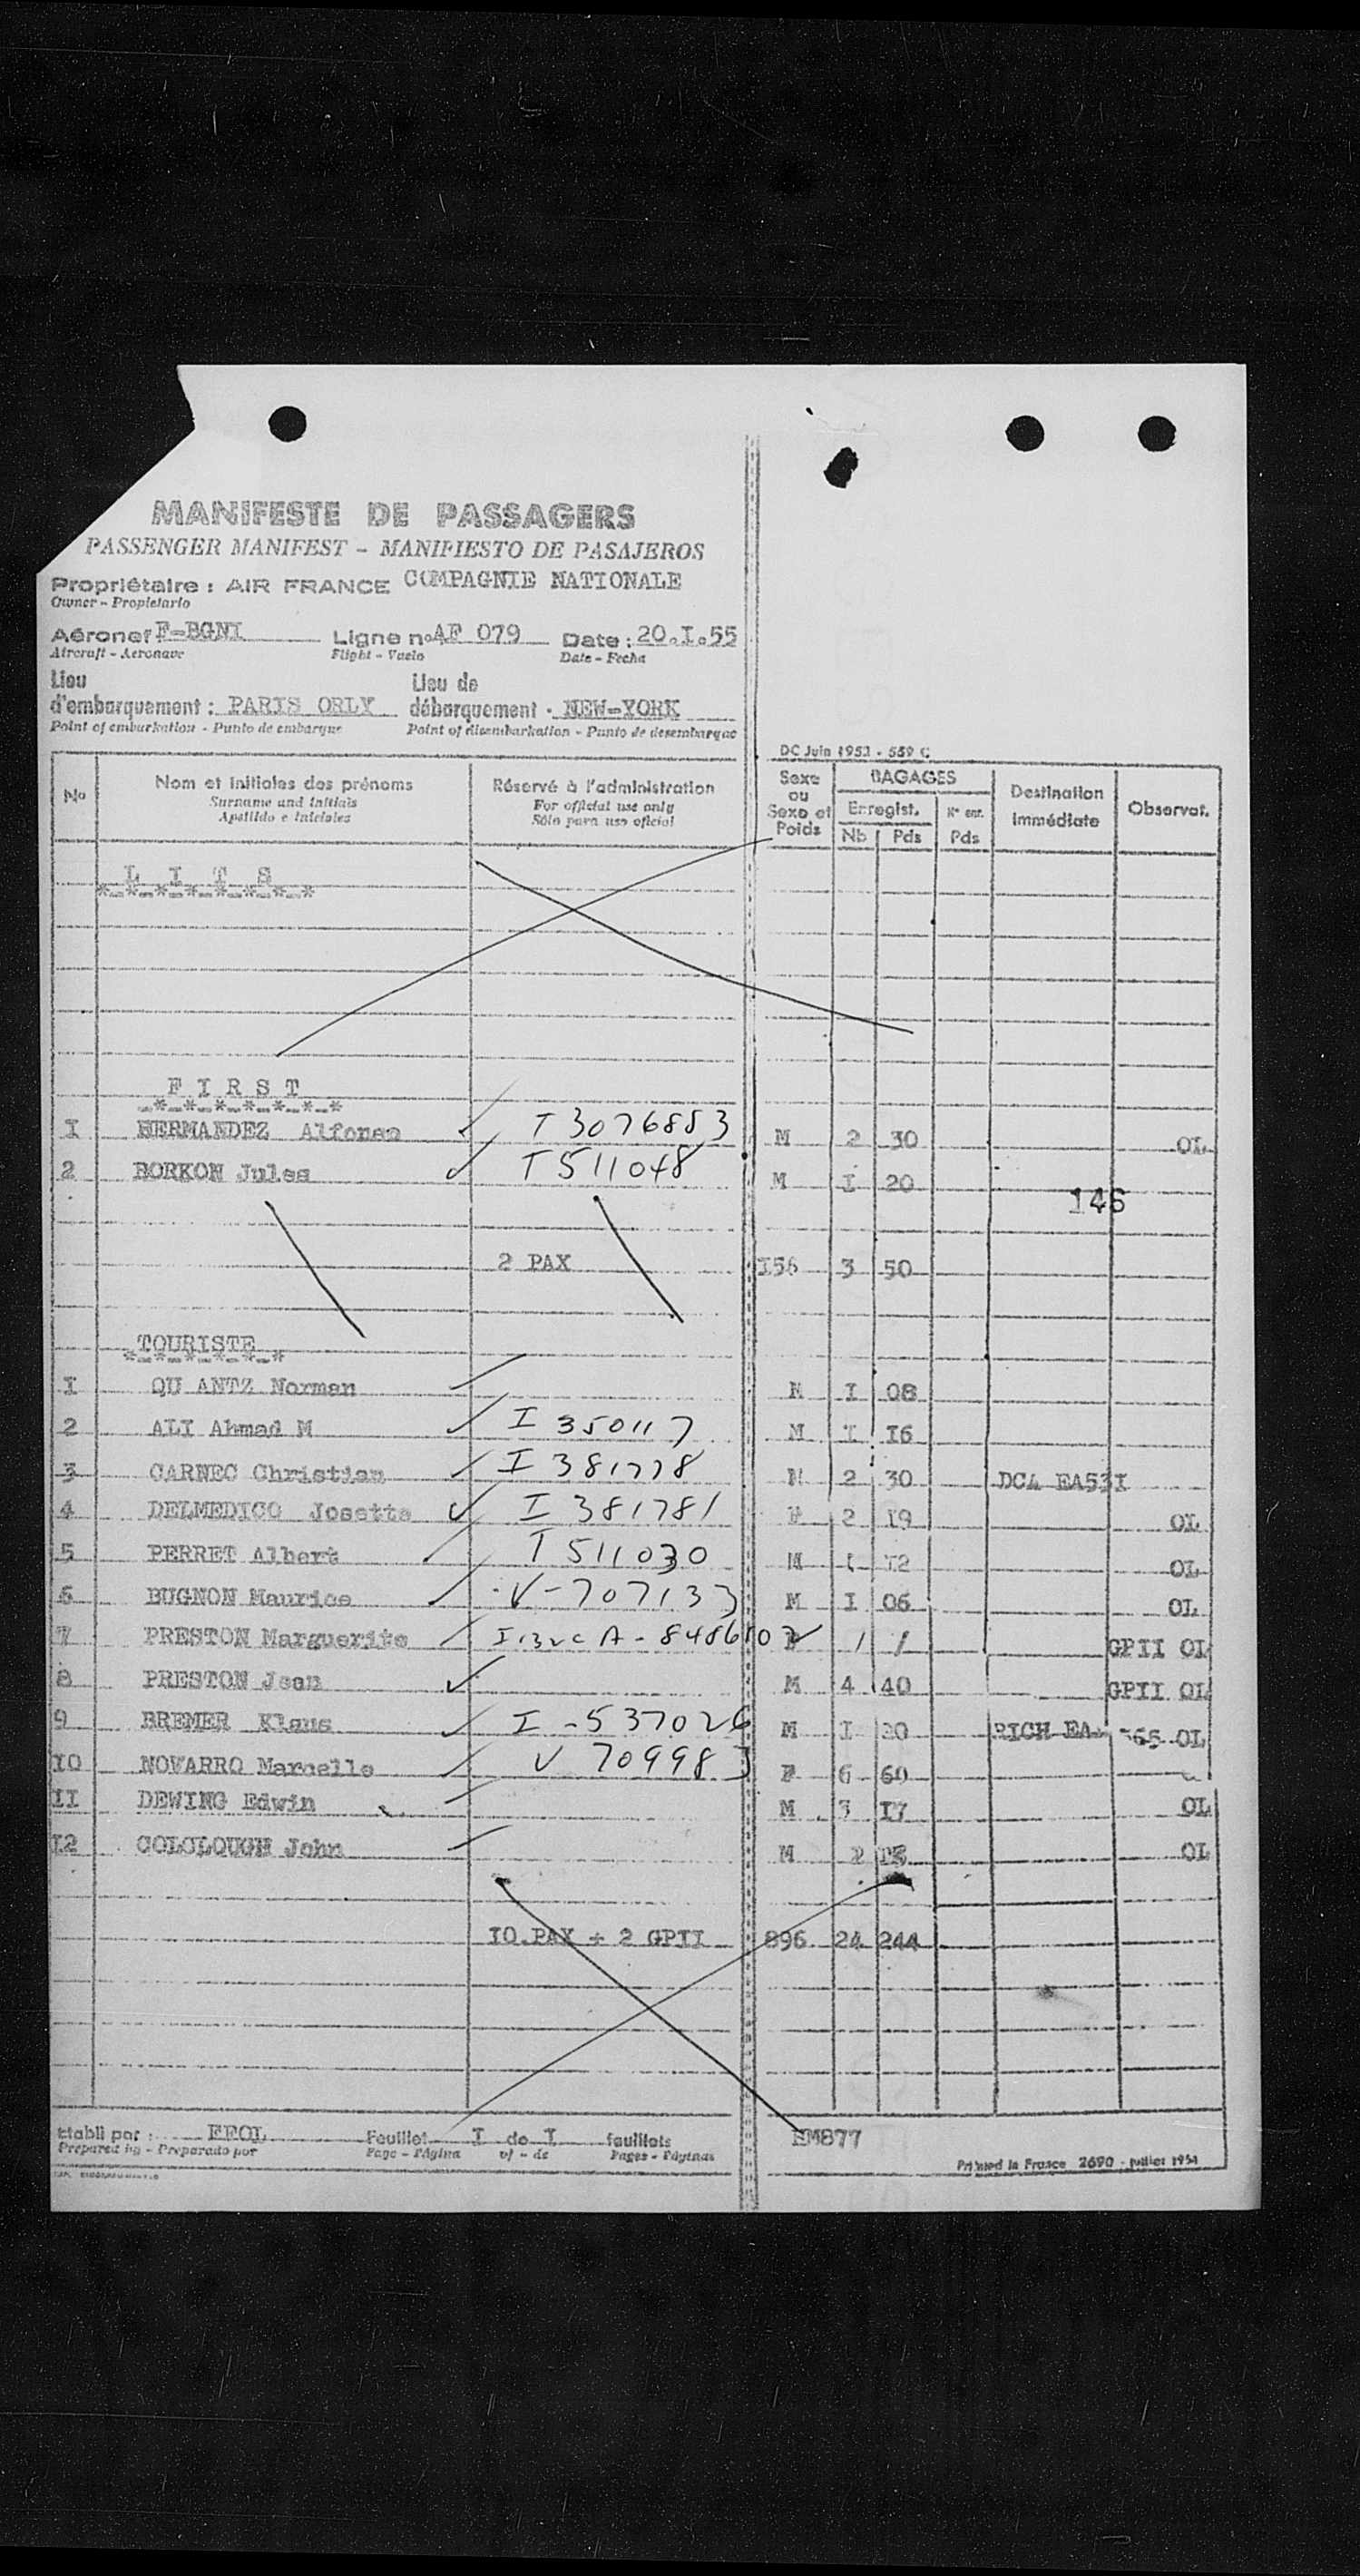 MANIFESTE DE PASSAGERS
PASSENGER MANIFEST - MANIFIESTO DE PASAJEROS
Propriétaire : AIR FRANCE COMPAGNIE NATIONALE
Owner - Propietario
Aéronef F-BGNI Ligne no AF 079 Date : 20.I.55
Aircraft - Aeronave Flight - Vuelo Date - Fecha
Lieu d'embarquement : PARIS ORLY Lieu de débarquement - NEW-YORK
Point of embarkation - Punto de embarque Point of disembarkation - Punto de desembarque
DC Juin 1953 - 559 C
No Nom et initiales des prénoms Réservé à l'administration Sexe ou Sexe et Poids BAGAGES Destination immédiate Observat.
Surname and initials For official use only Enregist. N° enr.
Apellido e iniciales Sólo para uso oficial Nb Pds Pds
L I T S
*-*-*-*-*-*-*-*
F I R S T
-*-*-*-*-*-*-*
I HERNANDEZ Alfonso T 3076883 M 2 30 OL
2 BORKON Jules T 511048 M I 20
146
2 PAX I56 3 50
TOURISTE
*-*-*-*-*-*
I QU ANTZ Norman M I 08
2 ALI Ahmad M I 350117 M I I6
3 CARNEC Christian I 381778 M 2 30 DC4 EA53I
4 DELMEDICO Josette I 381781 F 2 I9 OL
5 PERRET Albert T 511030 M I I2 OL
6 BUGNON Maurice V-707133 M I 06 OL
7 PRESTON Marguerite A-8486102 F / / GPII OL
8 PRESTON Jean M 4 40 GPII OL
9 BREMER Klaus I-537026 M I 20 RICH EA 565 OL
IO NOVARRO Marcelle V 709983 F 6 60
II DEWING Edwin M 3 I7 OL
I2 COLCLOUGH John M 2 OL
IO.PAX + 2 GPII 896 24 244
Etabli par : EFOL Feuillet I de I feuillets EM877
Prepared by - Preparado por Page - Página of - de Pages - Páginas
Printed in France 2690 - juillet 1954